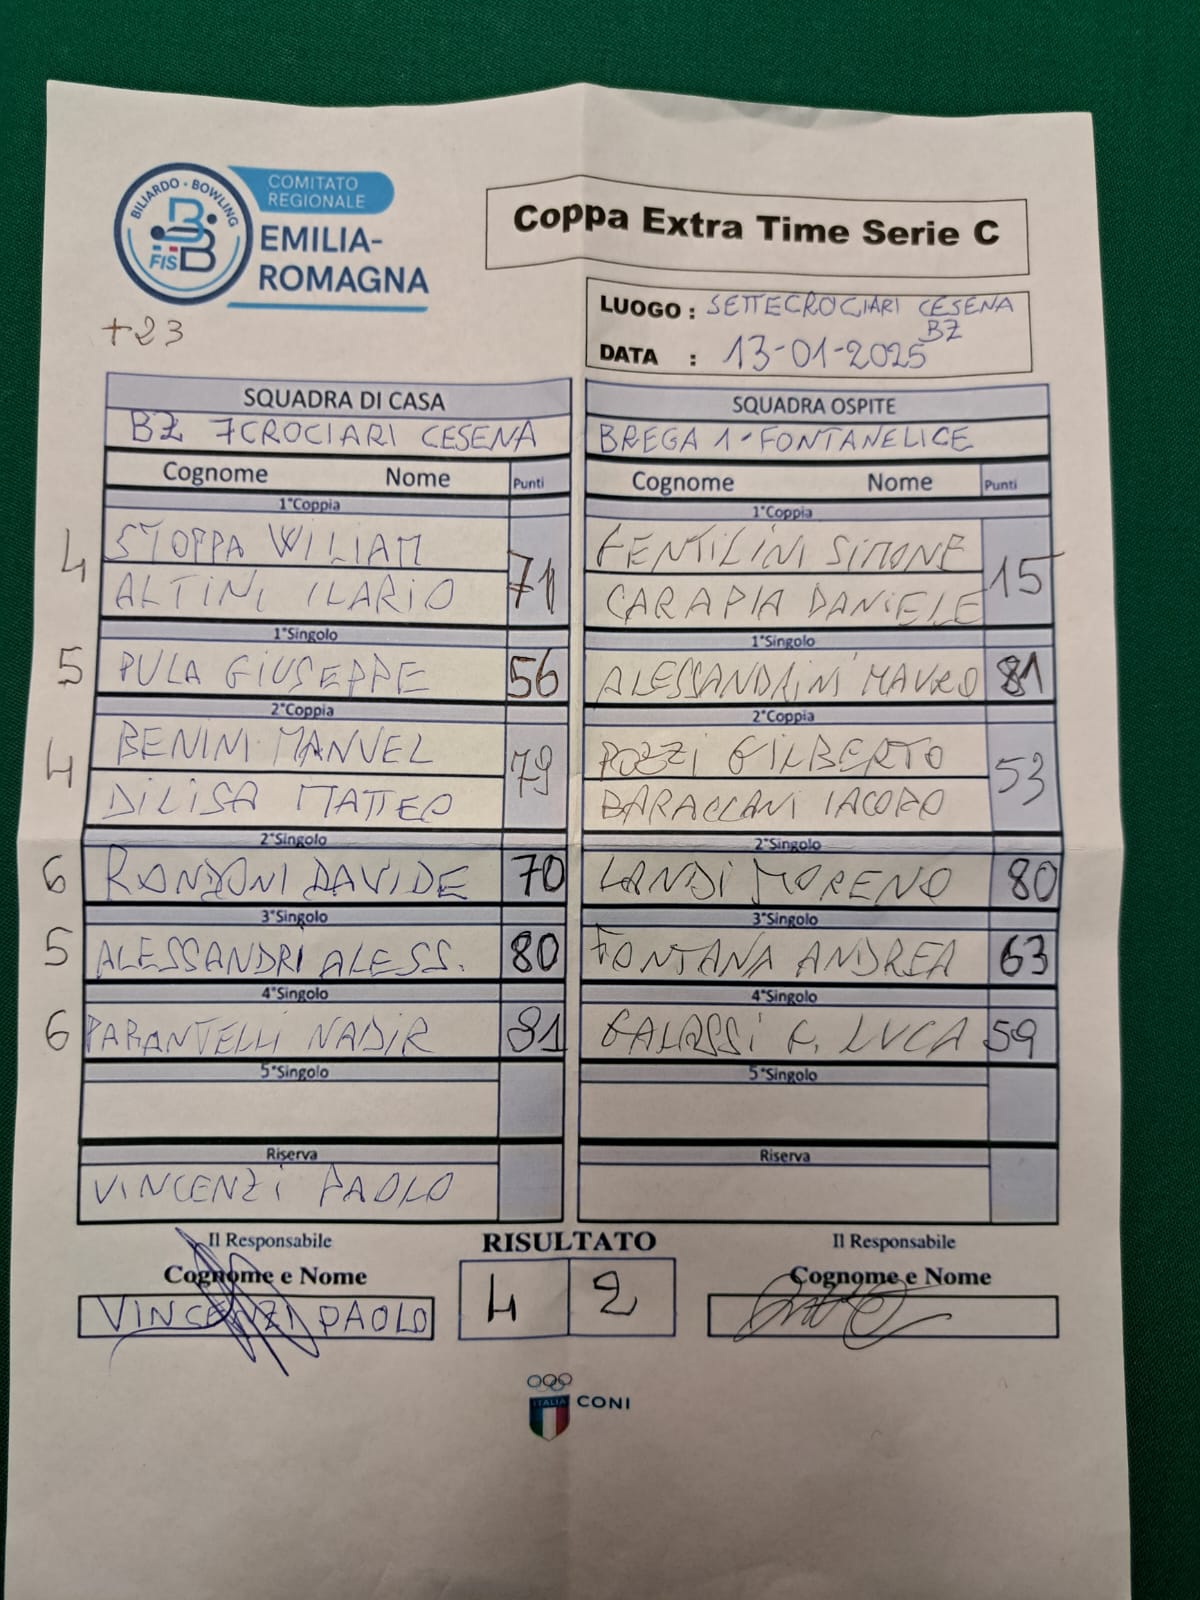 BILIARDO - BOWLING
FISBB
COMITATO
REGIONALE
EMILIA-
ROMAGNA
Coppa Extra Time Serie C
LUOGO : SETTECROCIARI CESENA
BZ
DATA : 13-01-2025
+23
SQUADRA DI CASA
BZ 7CROCIARI CESENA
Cognome Nome Punti
1°Coppia
4 STOPPA WILIAM
ALTINI ILARIO 71
1°Singolo
5 PULA GIUSEPPE 56
2°Coppia
4 BENINI MANUEL
DILISA MATTEO 79
2°Singolo
6 RONDONI DAVIDE 70
3°Singolo
5 ALESSANDRI ALESS. 80
4°Singolo
6 PARANTELLI NADIR 81
5°Singolo
Riserva
VINCENZI PAOLO
SQUADRA OSPITE
BREGA 1-FONTANELICE
Cognome Nome Punti
1°Coppia
GENTILINI SIMONE
CARAPIA DANIELE 15
1°Singolo
ALESSANDRINI MAURO 81
2°Coppia
POZZI GILBERTO
BARACCANI IACOPO 53
2°Singolo
LANDI MORENO 80
3°Singolo
FONTANA ANDREA 63
4°Singolo
GALASSI G. LUCA 59
5°Singolo
Riserva
Il Responsabile
Cognome e Nome
VINCENZI PAOLO
RISULTATO
4 2
Il Responsabile
Cognome e Nome
ITALIA
CONI